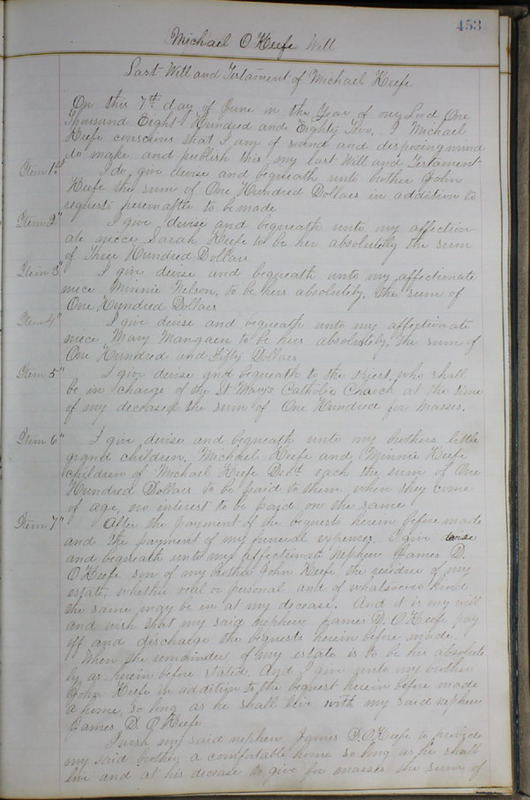 453
Michael O'Keefe Will
Last Will and Testament of Michael Keefe
On this 7th day of June in the Year of our Lord One
Thousand Eight Hundred and Eighty Two. I Michael
Keefe conscious that I am of sound and disposing mind
do make and publish this my last Will and Testament
Item 1st I do give devise and bequeath unto brother John
Keefe the sum of One Hundred Dollars in addition to
request hereinafter to be made
Item 2" I give devise and bequeath unto my affection-
ate niece Sarah Keefe to be her absolutely the sum
of Three Hundred Dollars
Item 3 I give devise and bequeath unto my affectionate
niece Minnie Nelson, to be hers absolutely, the sum of
One Hundred Dollars
Item 4" I give devise and bequeath unto my affectionate
niece Mary Mangaen to be hers absolutely, the sum of
One Hundred and Fifty Dollars
Item 5" I give devise and bequeath to the priest, who shall
be in charge of the St Marys Catholic Church at the time
of my decease the sum of One Hundred for masses.
Item 6" I give devise and bequeath unto my brothers little
grand children, Michael Keefe and Minnie Keefe
children of Michael Keefe Decd each the sum of One
Hundred Dollars to be paid to them when they come
of age, no interest to be paid on the same
Item 7" After the payment of the bequests herein before made
and the payment of my funeral expenses. I give devise
and bequeath unto my affectionate Nephew James D.
O'Keefe son of my brother John Keefe the residue of my
estate, whether real or personal and of whatsoever kind
the same may be in at my decease. And it is my will
and wish that my said nephew James D. O'Keefe pay
off and discharge the bequests herein before made.
When the remainder of my estate is to be his absolute
ly as herein before stated. And I give unto my brother
John Keefe in addition to the bequest herein before made
a home, so long as he shall live with my said nephew
James D. O'Keefe
I wish my said nephew James D. O'Keefe to provide
my said brother a comfortable home so long as he shall
live and at his decease to give for masses the sum of